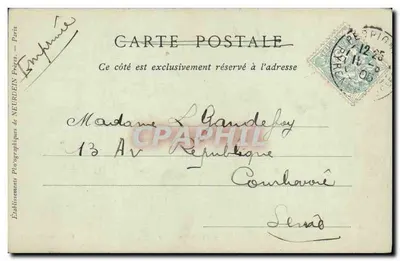 Imprimé
CARTE POSTALE
Ce côté est exclusivement réservé à l'adresse
Établissements Photographiques de NEURDEIN Frères. — Paris
12
Madame L Gaudefoy
13 Av République
CPARAMA
Courbevoie
Seine